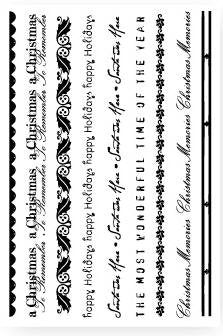 a Christmas To Remember a Christmas To Remember a Christmas To Remember a Christmas To Remember
happy Holidays happy Holidays happy Holidays happy Holidays
Santa was Here • Santa was Here • Santa was Here • Santa was Here
THE MOST WONDERFUL TIME OF THE YEAR
Christmas Memories Christmas Memories Christmas Memories